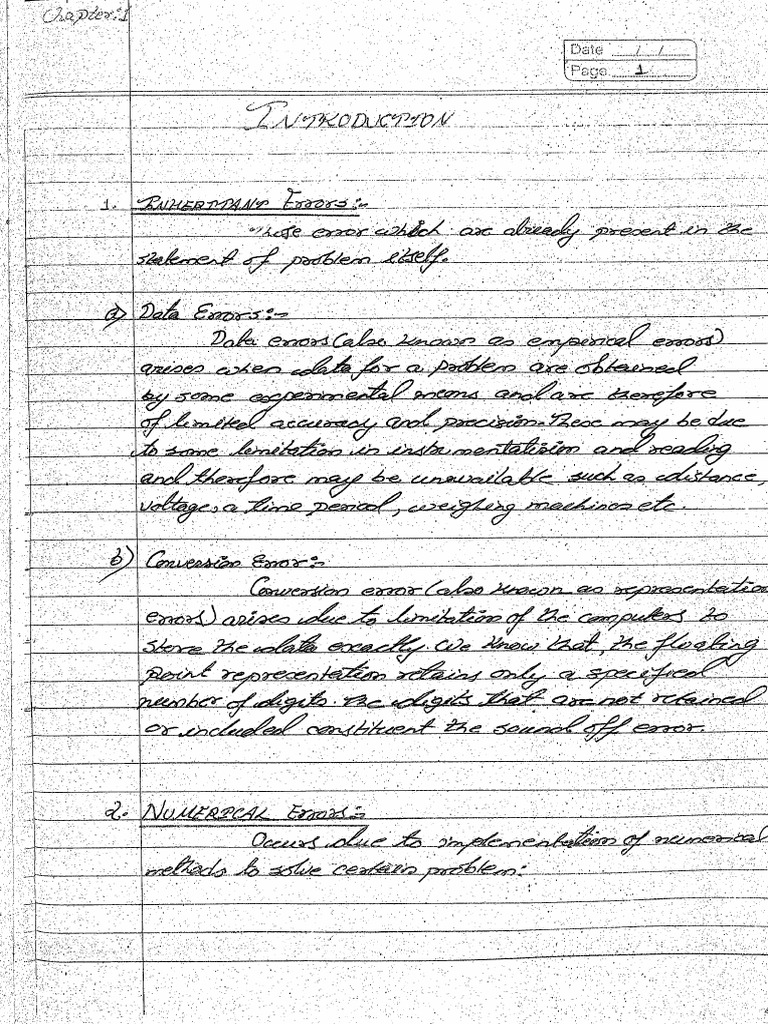 Chapter:1
Date / /
Page 1
INTRODUCTION
1. INHERITANT Errors:-
those error which are already present in the
statement of problem itself.
a) Data Errors:-
Data errors (also known as emperical errors)
arises when data for a problem are obtained
by some experimental means and are therefore
of limited accuracy and precision. These may be due
to some limitation in instrumentation and reading
and therefore may be unavailable such as distance,
voltage, a time period, weighing machines etc.
b) Conversion Error:-
Conversion error (also known as representation
errors) arises due to limitation of the computers to
store the data exactly. We know that, the floating
point representation retains only a specified
number of digits. The digits that are not retained
or included constituent the sound off error.
2. NUMERICAL Errors:-
Occurs due to implementation of numerical
methods to solve certain problem: